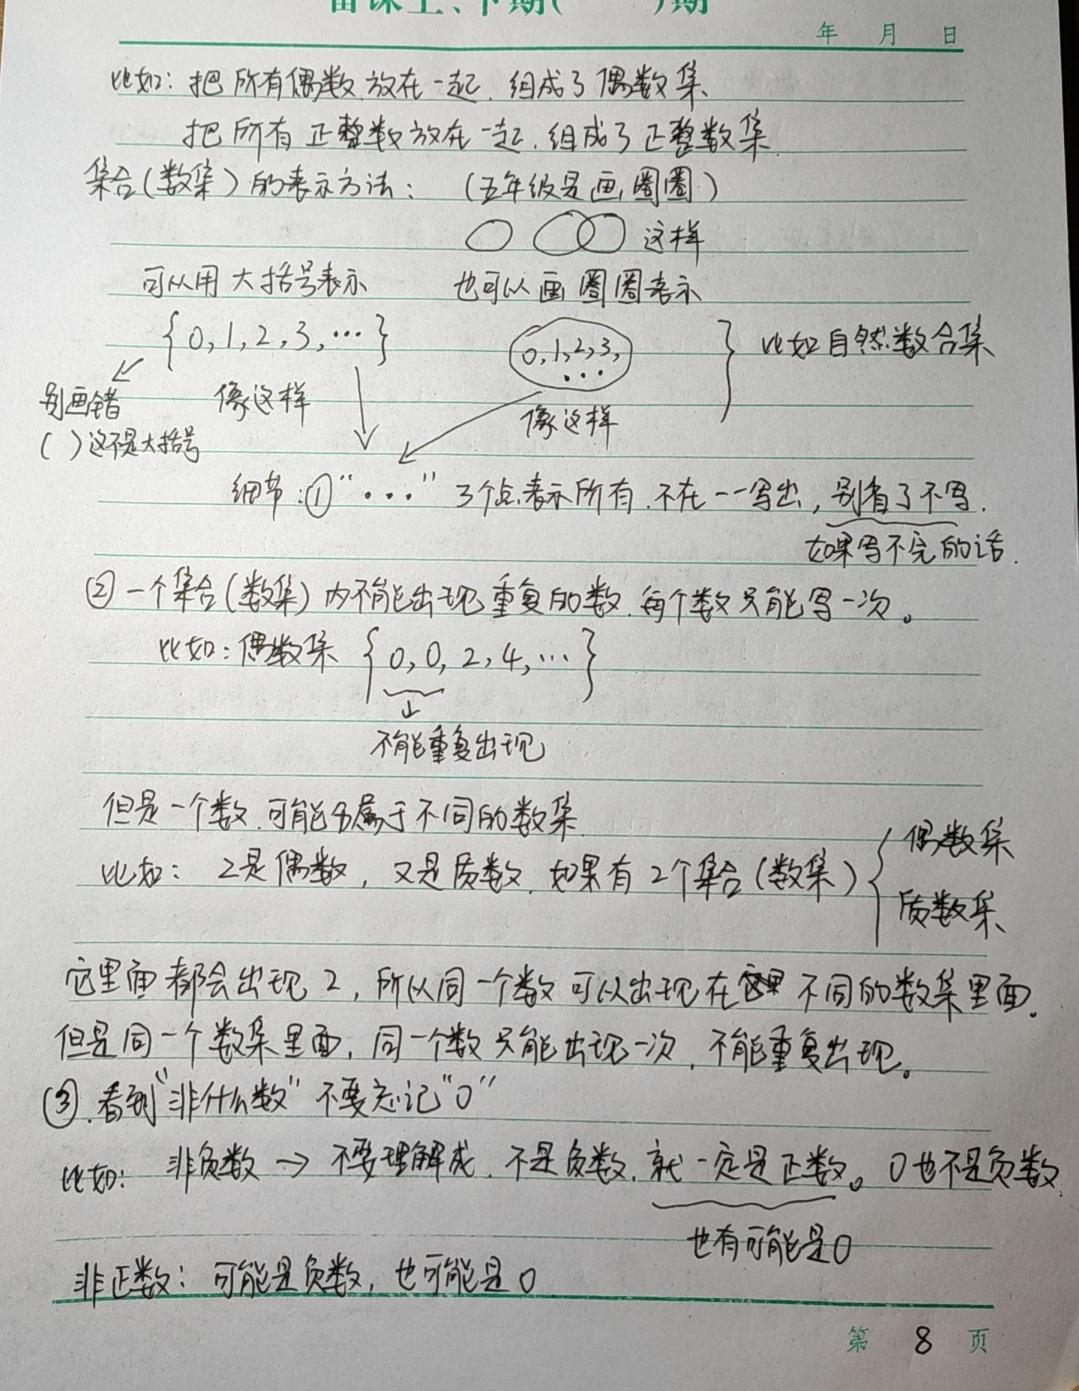 备课上、下期( )期
年 月 日
比如：把所有偶数放在一起，组成了偶数集
把所有正整数放在一起，组成了正整数集
集合(数集)的表示方法：(五年级是画圈圈)
这样
可以用大括号表示 也可以画圈圈表示
{0,1,2,3,…} 0,1,2,3,… } 比如自然数合集
别画错 像这样 像这样
( )这不是大括号
细节：①“…”3个点表示所有，不在一一写出，别省了不写.
如果写不完的话.
②一个集合(数集)内不能出现重复的数，每个数只能写一次。
比如：偶数集 {0,0,2,4,…}
↓
不能重复出现
但是一个数，可能分属于不同的数集
比如：2是偶数，又是质数，如果有2个集合(数集){偶数集
质数集
它里面都会出现2，所以同一个数可以出现在不同的数集里面.
但是同一个数集里面，同一个数只能出现一次，不能重复出现。
③.看到“非什么数”不要忘记“0”
比如：非负数→不要理解成，不是负数，就一定是正数。0也不是负数
也有可能是0
非正数：可能是负数，也可能是0
第 8 页